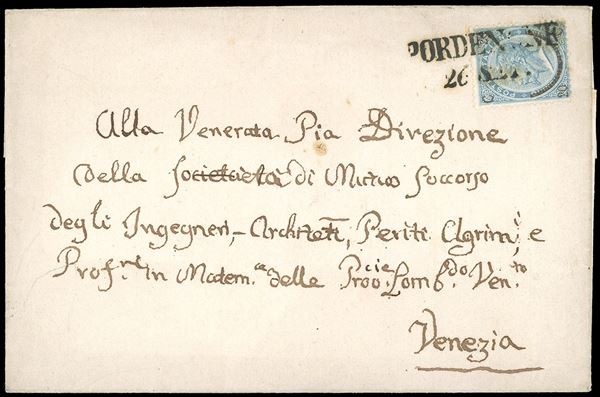 PORDENONE
26 SET.
Alla Venerata Pia Direzione
della Societaietà di Mutuo Soccorso
degli Ingegneri, Architetti, Periti Agrimi, e
Prof.ri in Matem.ca delle Prov.cie Lomb.do Ven.to
Venezia